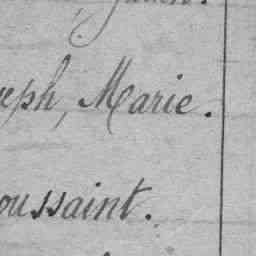 eph, Marie.
oussaint.